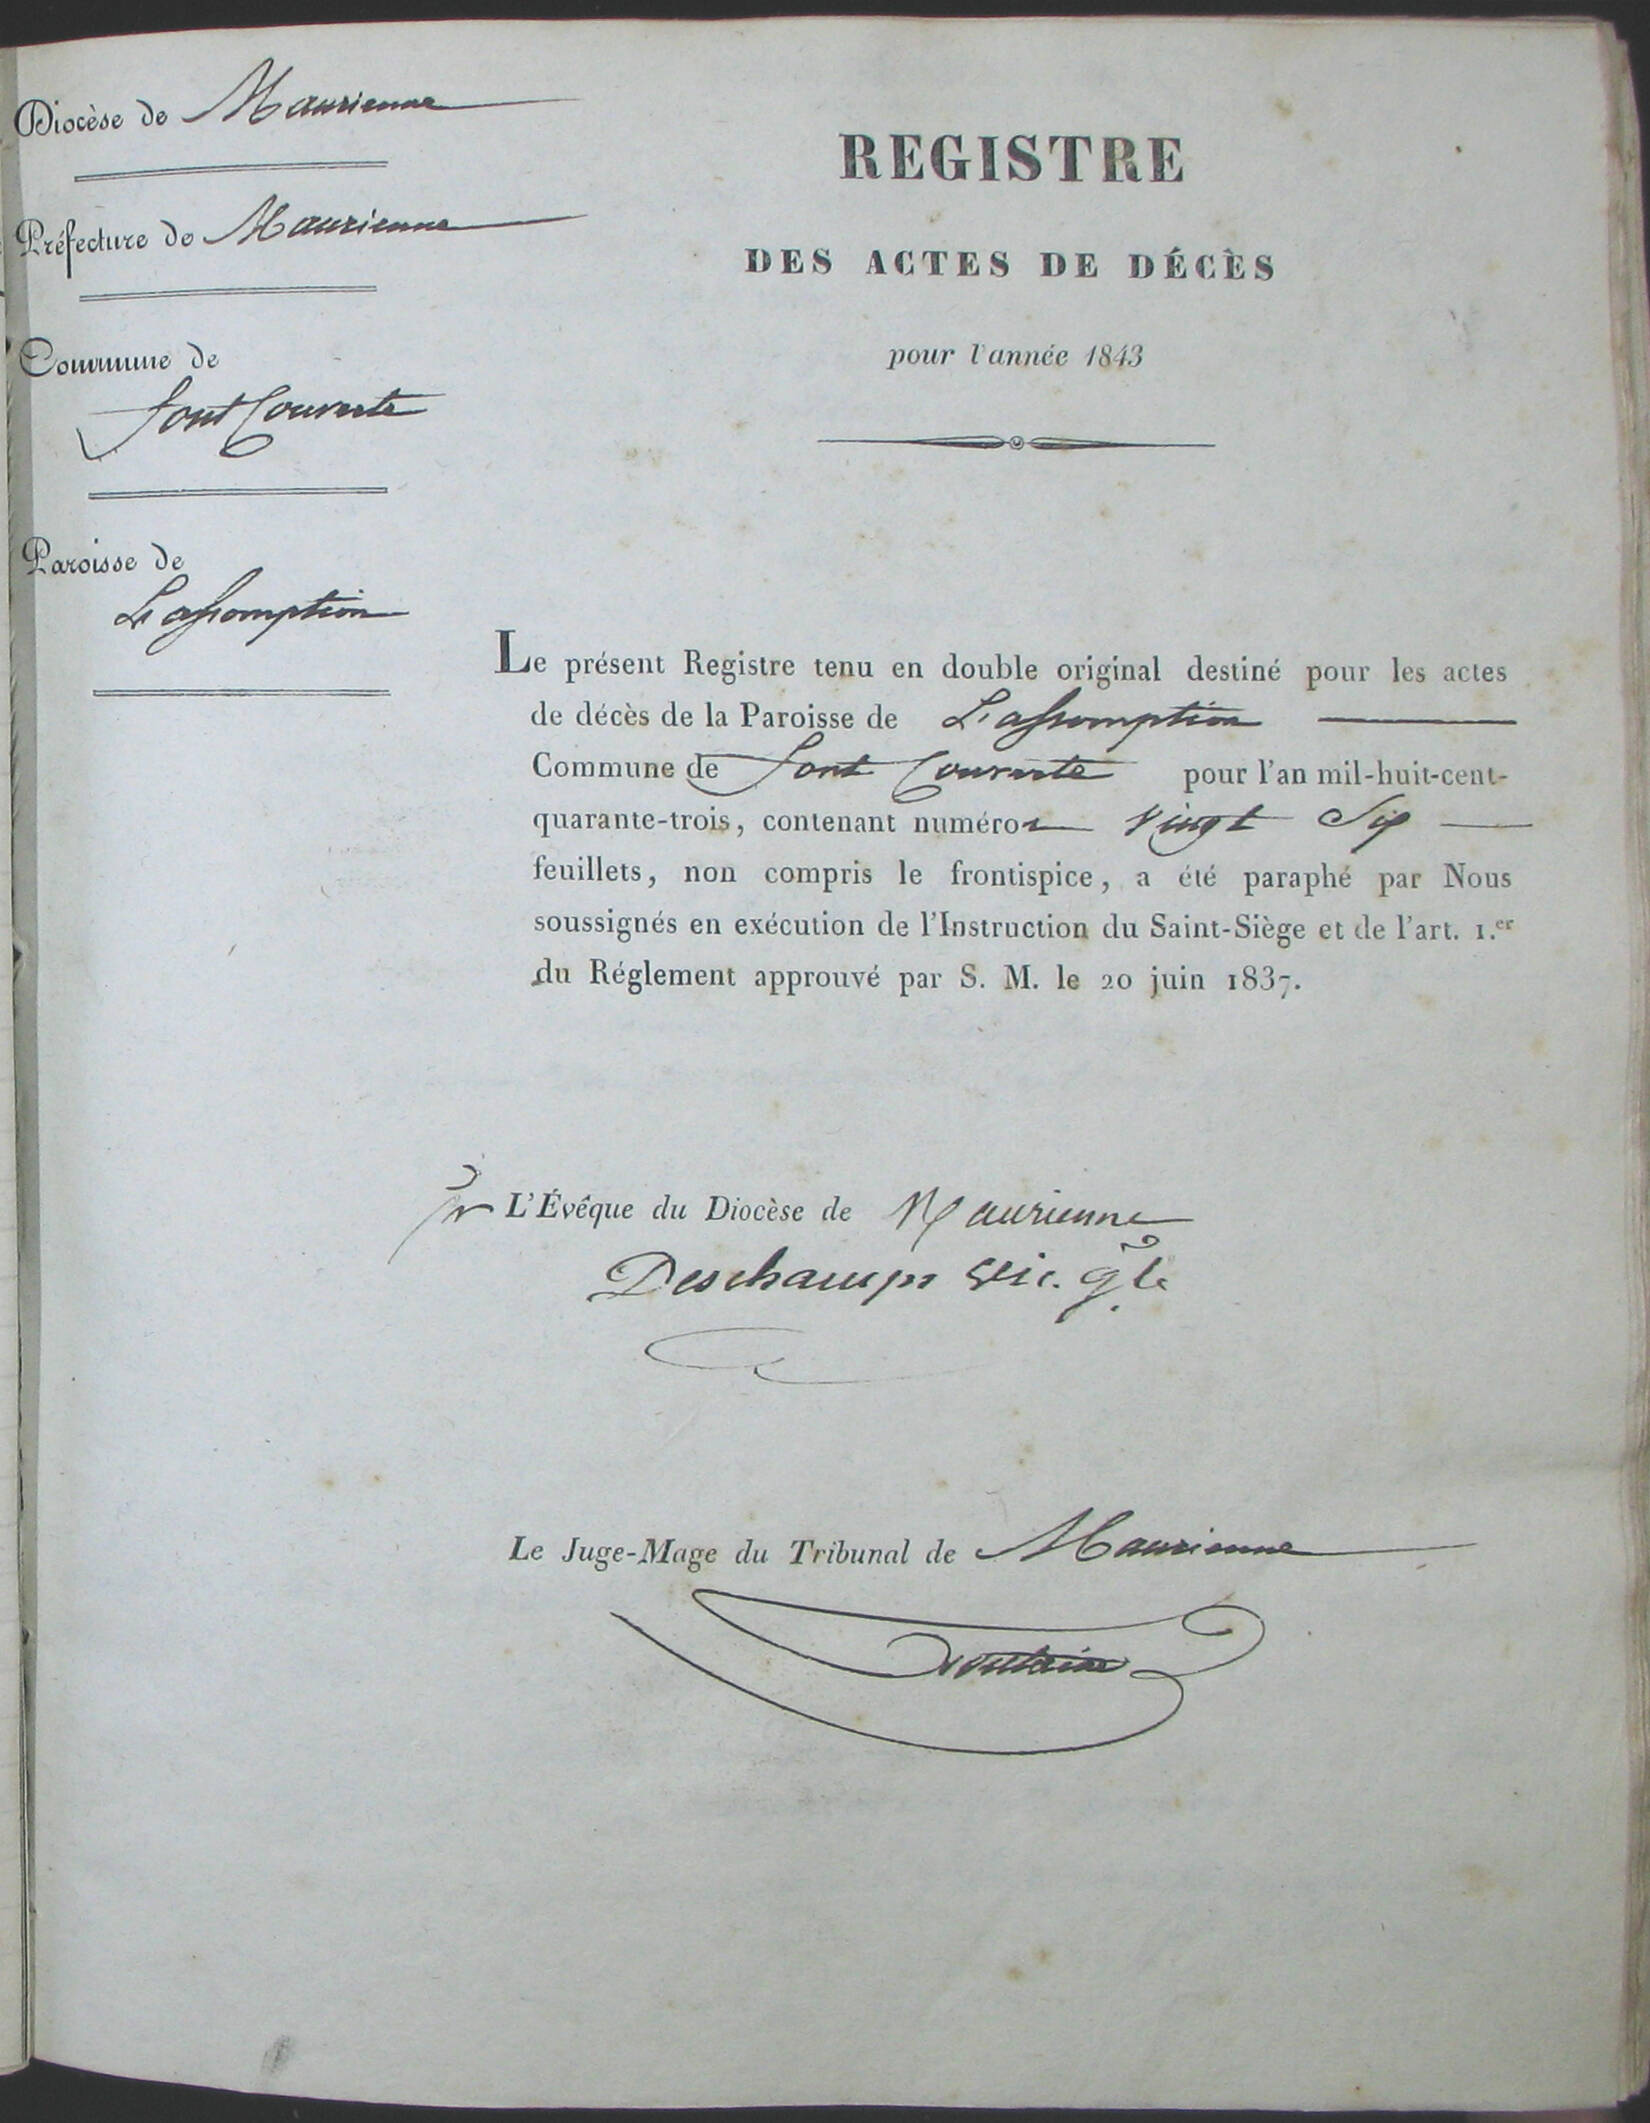 Diocèse de Maurienne
Préfecture de Maurienne
Commune de
Font Couverte
Paroisse de
L'assomption
REGISTRE
DES ACTES DE DÉCÈS
pour l'année 1843
Le présent Registre tenu en double original destiné pour les actes
de décès de la Paroisse de L'assomption
Commune de Font Couverte pour l'an mil-huit-cent-
quarante-trois, contenant numéros vingt Six
feuillets, non compris le frontispice, a été paraphé par Nous
soussignés en exécution de l'Instruction du Saint-Siège et de l'art. 1.er
du Réglement approuvé par S. M. le 20 juin 1837.
pr L'Évêque du Diocèse de Maurienne
Deschamps vic. gl
Le Juge-Mage du Tribunal de Maurienne